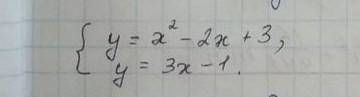 { y = x² - 2x + 3,
y = 3x - 1.